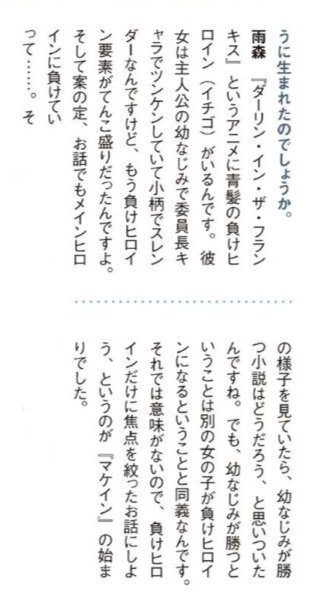 うに生まれたのでしょうか。
雨森　『ダーリン・イン・ザ・フラン
キス』というアニメに青髪の負けヒ
ロイン（イチゴ）がいるんです。彼
女は主人公の幼なじみで委員長キ
ャラでツンケンしていて小柄でスレン
ダーなんですけど、もう負けヒロイ
ン要素がてんこ盛りだったんですよ。
そして案の定、お話でもメインヒロ
インに負けてい
って……。そ
の様子を見ていたら、幼なじみが勝
つ小説はどうだろう、と思いついた
んですね。でも、幼なじみが勝つと
いうことは別の女の子が負けヒロイ
ンになるということと同義なんです。
それでは意味がないので、負けヒロ
インだけに焦点を絞ったお話にしよ
う、というのが『マケイン』の始ま
りでした。